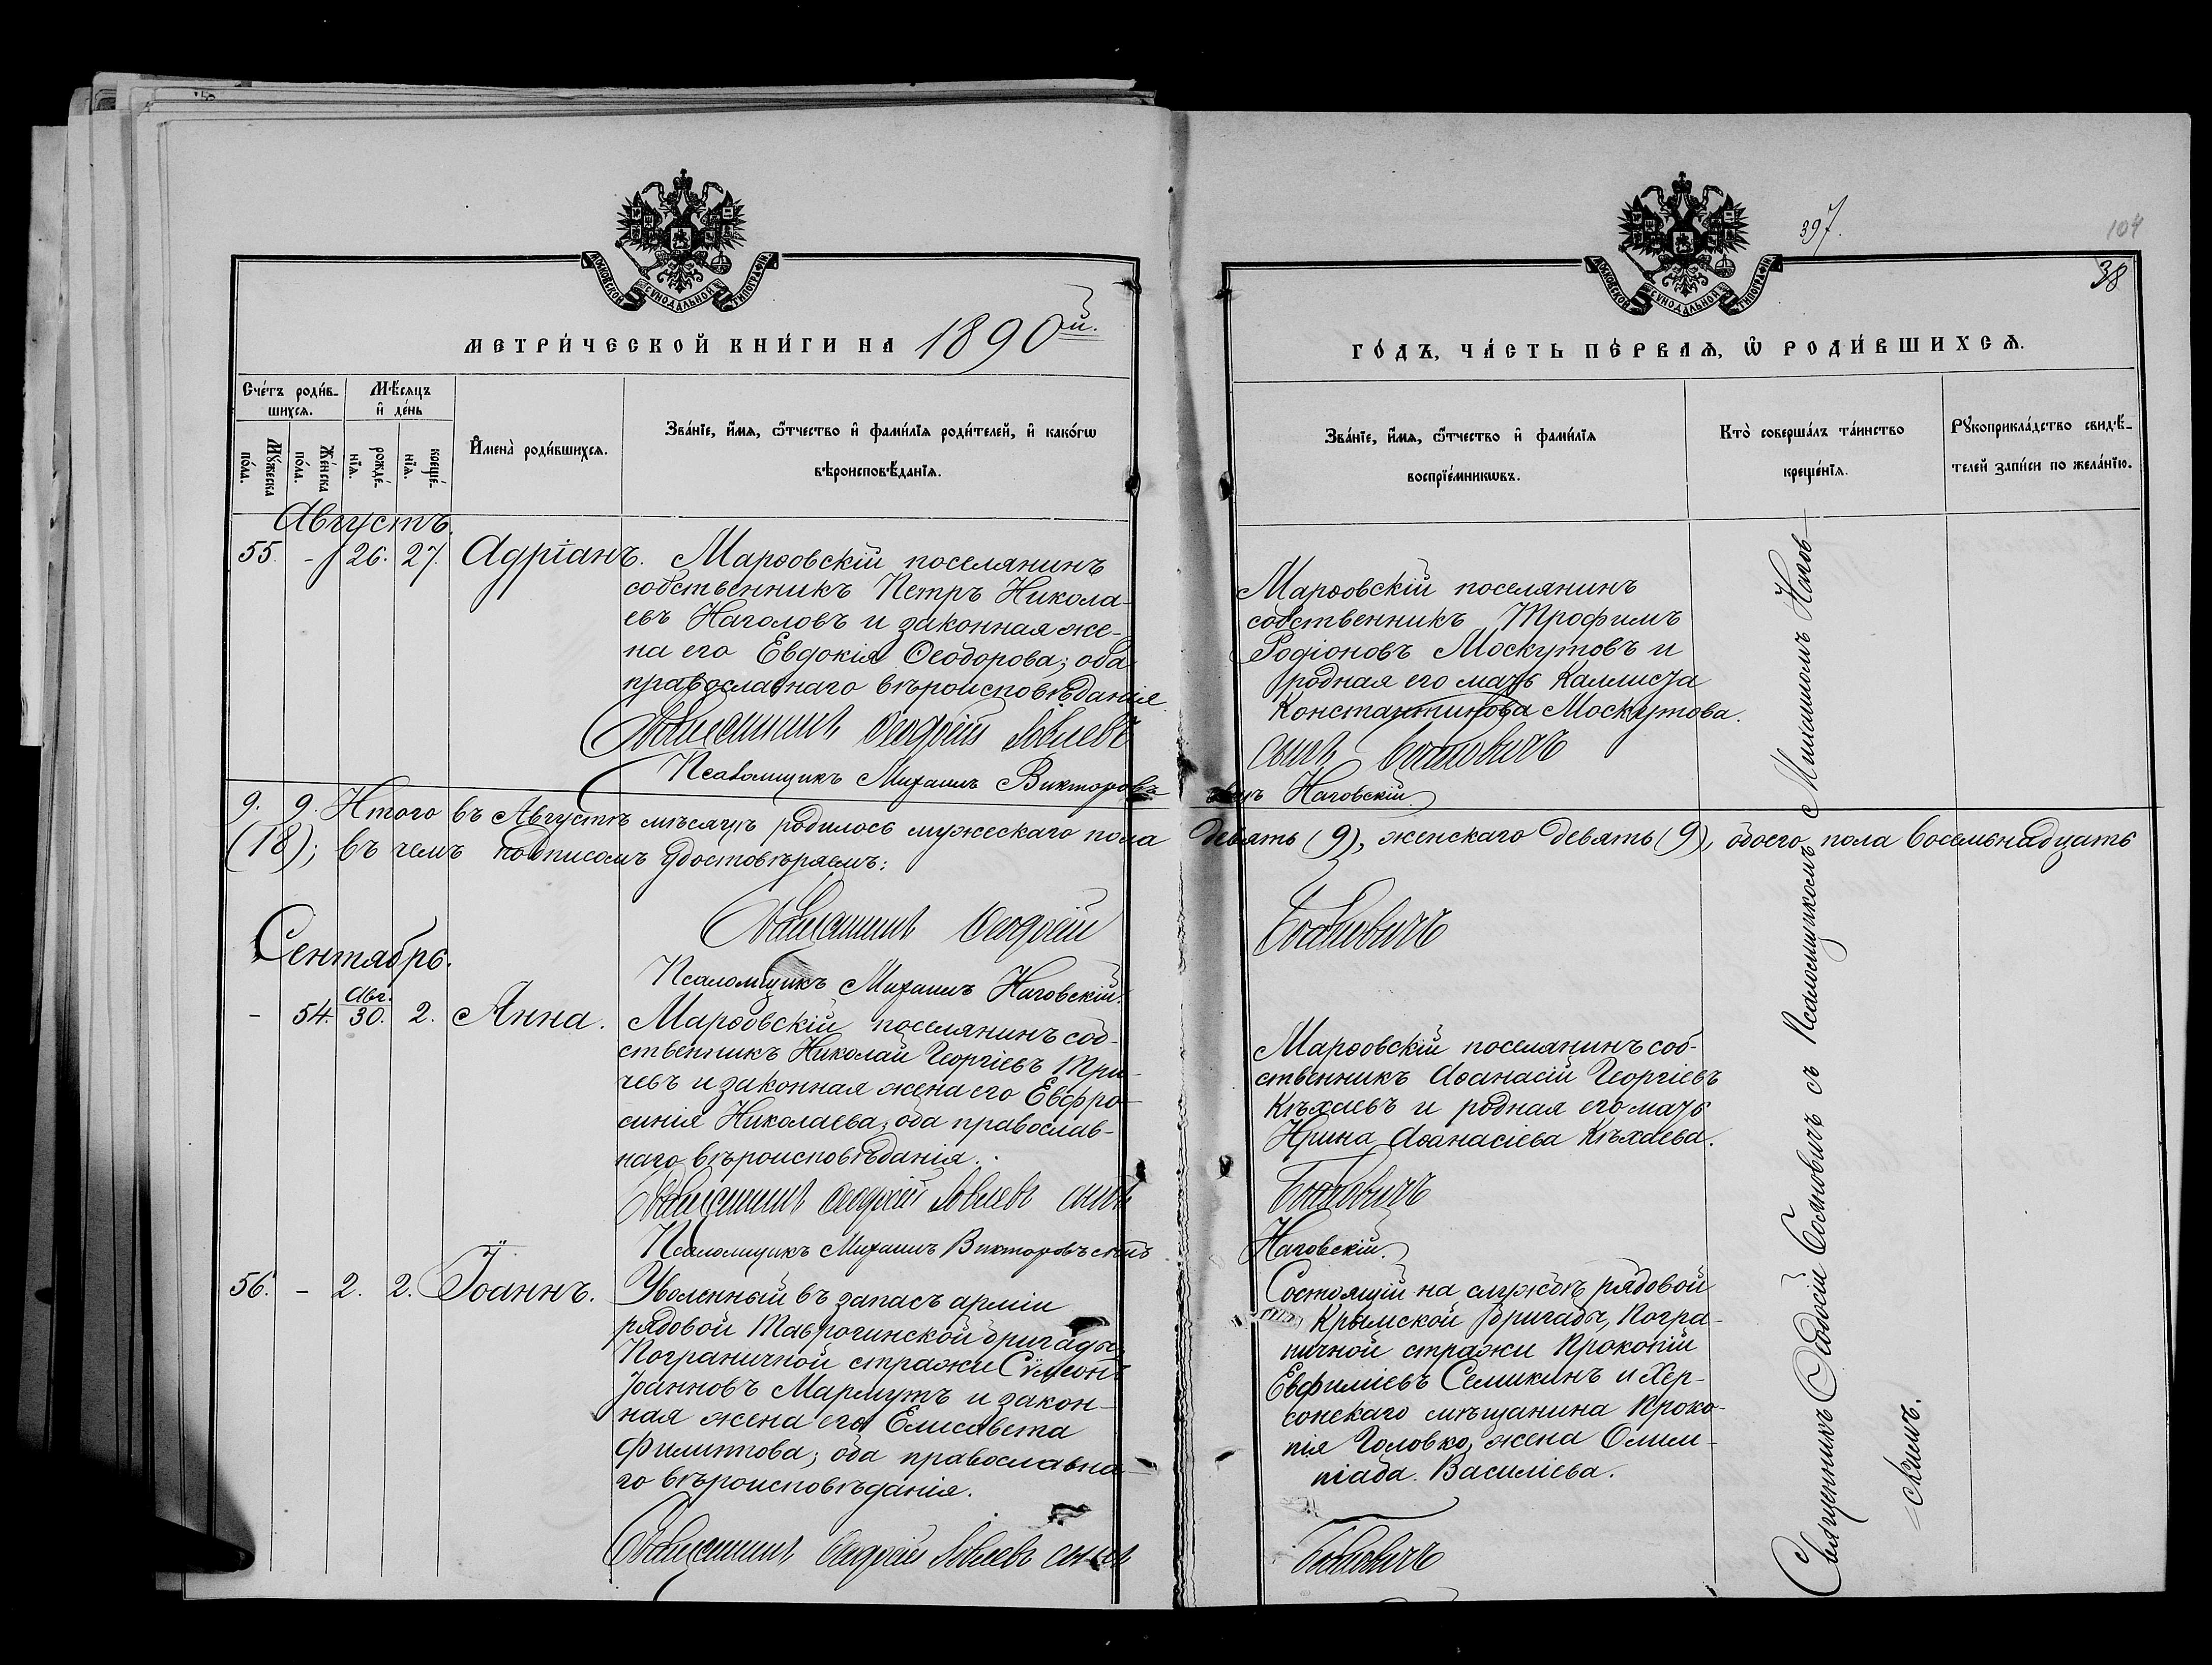 МОСКОВСКОЙ СѴНОДАЛЬНОЙ ТИПОГРАФІИ
МЕТРИ́ЧЕСКОЙ КНИ́ГИ НА 1890й.
Сче́тъ роди́в-
шихся.
Мѣ́сяцъ
и де́нь
Мꙋ́жеска
по́ла.
Же́нска
по́ла.
рожде́-
нїѧ.
креще́-
нїѧ.
И҆мена̀ роди́вшихсѧ.
Зва́нїе, и҆́мѧ, ѻ҆́тчество и҆ фами́лїѧ роди́телей, и҆ како́гѡ
вѣроисповѣ́данїѧ.
Августъ.
55. - 26. 27. Адріанъ. Марѳовскій поселянинъ
собственникъ Петръ Никола-
евъ Наголовъ и законная же-
на его Евдокія Ѳеодорова; оба
православнаго вѣроисповѣданія
Священникъ Ѳеодосій Іовлевъ
Псаломщикъ Михаилъ Викторовъ
9. 9. Итого въ Августѣ мѣсяцѣ родилось мужескаго пола
(18); въ чемъ подписомъ удостовѣряемъ:
Священникъ Ѳеодосій
Псаломщикъ Михаилъ Наговскій.
Сентябрь.
- 54. Авг. 30. 2. Анна. Марѳовскій поселянинъ соб-
ственникъ Николай Георгіевъ Три-
чевъ и законная жена его Евфро-
синія Николаева, оба православ-
наго вѣроисповѣданія.
Священникъ Ѳеодосій Іовлевъ сынъ
Псаломщикъ Михаилъ Викторовъ сынъ
56. - 2. 2. Іоаннъ. Уволенный въ запасъ арміи
рядовой Таврогинской бригады
Пограничной стражи Сѵмеонъ
Іоанновъ Мармутъ и закон-
ная жена его Елисавета
Филиппова; оба православна-
го вѣроисповѣданія.
Священникъ Ѳеодосій Іовлевъ сынъ
397.
104
38
МОСКОВСКОЙ СѴНОДАЛЬНОЙ ТИПОГРАФІИ
ГО́ДЪ, ЧА́СТЬ ПЕ́РВАѦ, Ѽ РОДИ́ВШИХСѦ.
Зва́нїе, и҆́мѧ, ѻ҆́тчество и҆ фами́лїѧ
воспрїе́мникѡвъ.
Кто̀ соверша́лъ та́инство
креще́нїѧ.
Рꙋкоприкла́дство свидѣ́-
телей за́писи по жела́нїю.
Марѳовскій поселянинъ
собственникъ Трофимъ
Родіоновъ Москутовъ и
родная его мать Каллиста
Константинова Москутова.
сынъ Бояновичъ
Наговскій
девять (9), женскаго девять (9), обоего пола восемьнадцать
Бояновичъ
Марѳовскій поселянинъ соб-
ственникъ Аѳанасій Георгіевъ
Кѣхаевъ и родная его мать
Ирина Аѳанасіева Кѣхаева.
Бояновичъ
Наговскій
Состоящій на службѣ рядовой
Крымской бригады, Погра-
ничной стражи Прокопій
Евфиміевъ Семикинъ и Хер-
сонскаго мѣщанина Проко-
пія Головко, жена Олим-
піада Василіева.
Бояновичъ
Священникъ Ѳеодосій Бояновичъ съ Псаломщикомъ Михаиломъ Нагов-
-скимъ.